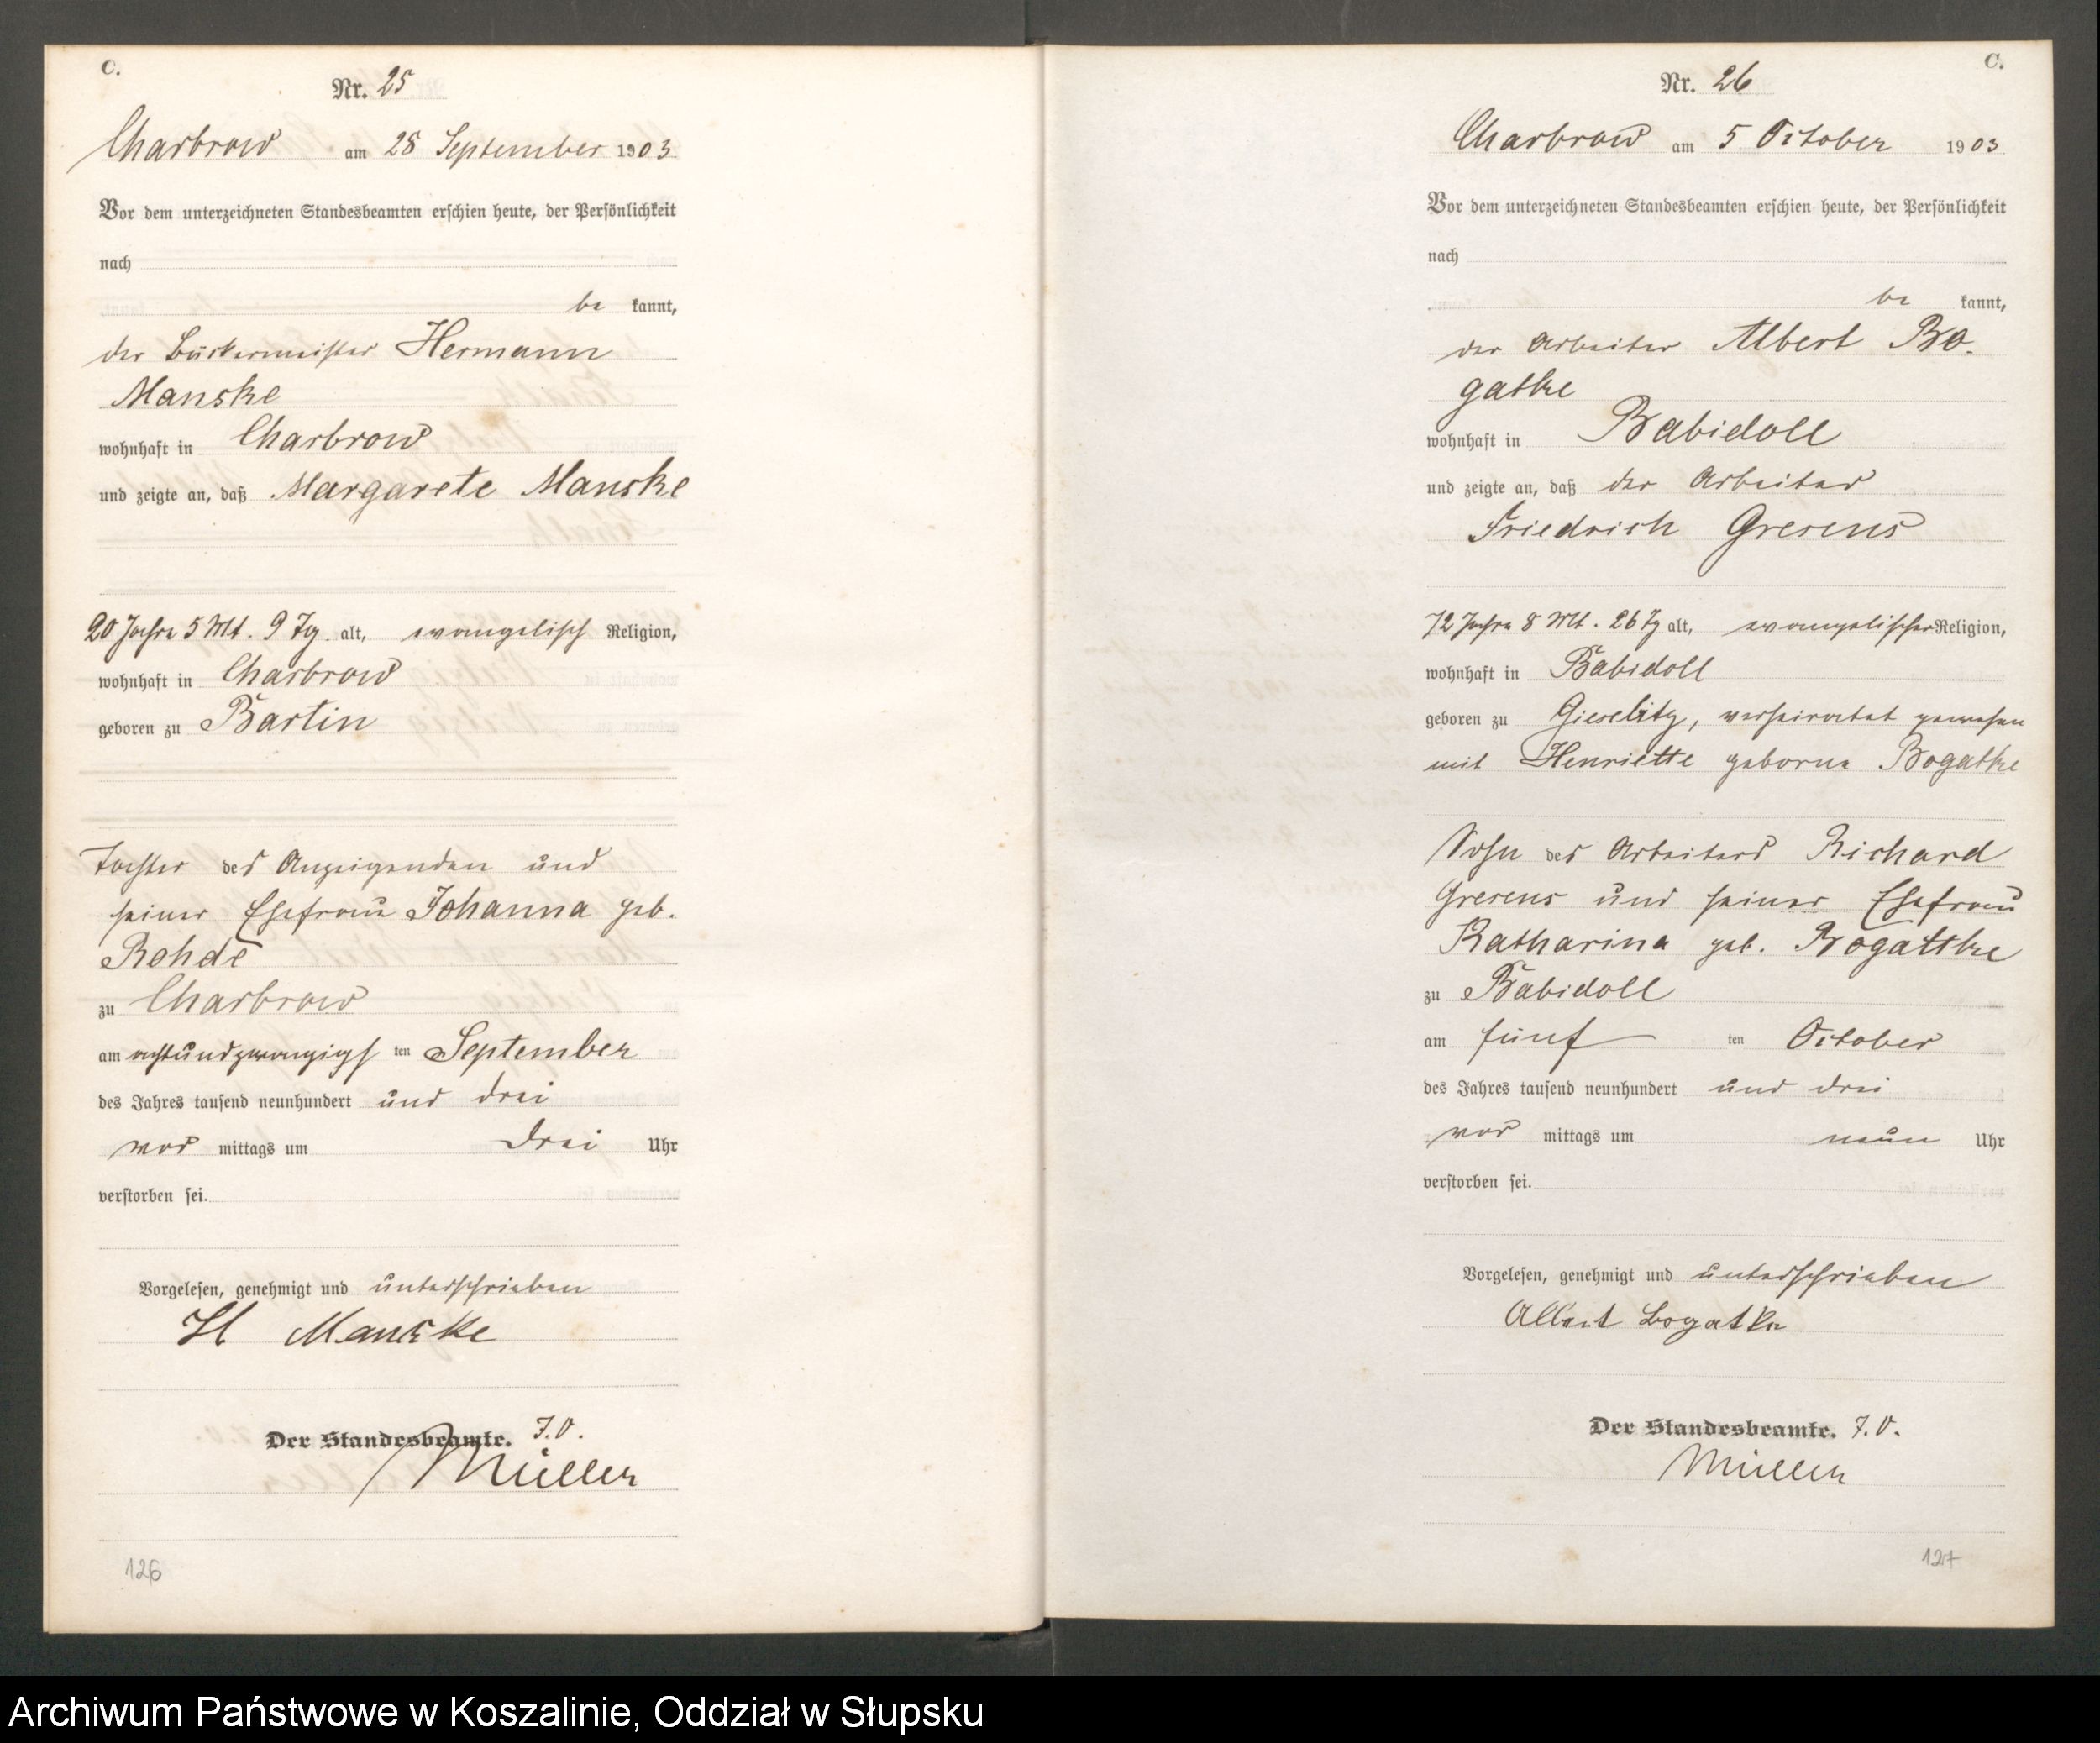 C.
Nr. 25
Charbrow am 28 September 1903
Vor dem unterzeichneten Standesbeamten erschien heute, der Persönlichkeit
nach
be kannt,
der Bäckermeister Hermann
Manske
wohnhaft in Charbrow
und zeigte an, daß Margarete Manske
20 Jahre 5 Mt. 9 Tg. alt, evangelisch Religion,
wohnhaft in Charbrow
geboren zu Bartin
Tochter des Anzeigenden und
seiner Ehefrau Johanna geb.
Rohde
zu Charbrow
am achtundzwanzigs ten September
des Jahres tausend neunhundert und drei
vor mittags um drei Uhr
verstorben sei.
Vorgelesen, genehmigt und unterschrieben
H Manske
Der Standesbeamte. J.V.
Müller
126
C.
Nr. 26
Charbrow am 5 October 1903
Vor dem unterzeichneten Standesbeamten erschien heute, der Persönlichkeit
nach
be kannt,
der Arbeiter Albert Bo-
gatke
wohnhaft in Babidoll
und zeigte an, daß der Arbeiter
Friedrich Gresens
72 Jahre 8 Mt. 26 Tg alt, evangelischer Religion,
wohnhaft in Babidoll
geboren zu Gieselitz, verheiratet gewesen
mit Henriette geborne Bogatke
Sohn des Arbeiters Richard
Gresens und seiner Ehefrau
Katharina geb. Bogattke
zu Babidoll
am fünf ten October
des Jahres tausend neunhundert und drei
vor mittags um neun Uhr
verstorben sei.
Vorgelesen, genehmigt und unterschrieben
Albert Bogatke
Der Standesbeamte. J.V.
Müller
127
Archiwum Państwowe w Koszalinie, Oddział w Słupsku